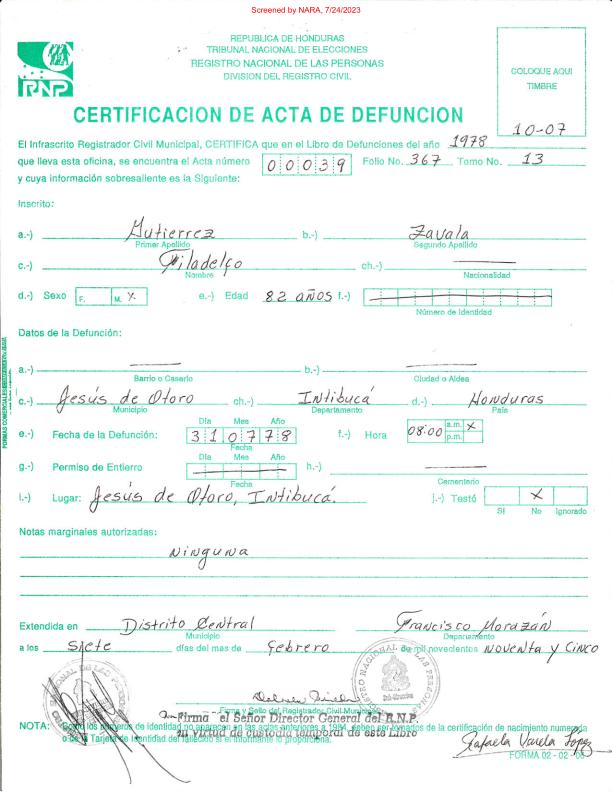 Screened by NARA, 7/24/2023
REPUBLICA DE HONDURAS
TRIBUNAL NACIONAL DE ELECCIONES
REGISTRO NACIONAL DE LAS PERSONAS
DIVISION DEL REGISTRO CIVIL
RNP
COLOQUE AQUI
TIMBRE
CERTIFICACION DE ACTA DE DEFUNCION
10-07
El Infrascrito Registrador Civil Municipal, CERTIFICA que en el Libro de Defunciones del año 1978
que lleva esta oficina, se encuentra el Acta número 00039 Folio No. 367 Tomo No. 13
y cuya información sobresaliente es la Siguiente:
Inscrito:
a.-) Gutierrez b.-) Zavala
Primer Apellido Segundo Apellido
c.-) Filadelfo ch.-)
Nombre Nacionalidad
d.-) Sexo F. M. X e.-) Edad 82 años f.-)
Número de Identidad
Datos de la Defunción:
a.-) b.-)
Barrio o Caserio Ciudad o Aldea
c.-) Jesús de Otoro ch.-) Intibucá d.-) Honduras
Municipio Departamento País
Día Mes Año
e.-) Fecha de la Defunción: 310778 f.-) Hora 08:00 a.m. X p.m.
Fecha
Día Mes Año
g.-) Permiso de Entierro h.-)
Fecha Cementerio
i.-) Lugar: Jesús de Otoro, Intibucá. j.-) Testó X
SI No Ignorado
Notas marginales autorizadas:
Ninguna
Extendida en Distrito Central Francisco Morazán
Municipio Departamento
a los Siete días del mes de febrero de mil novecientos noventa y cinco
Firma y Sello del Registrador Civil Municipal
Firma el Señor Director General del R.N.P.
en virtud de custodia temporal de este Libro
NOTA: Como los números de identidad no aparecen en las actas anteriores a 1984, deben ser tomados de la certificación de nacimiento numerada
o de la Tarjeta de Identidad del fallecido si el informante lo proporciona.
Rafaela Varela Lopez
FORMA 02-02-06